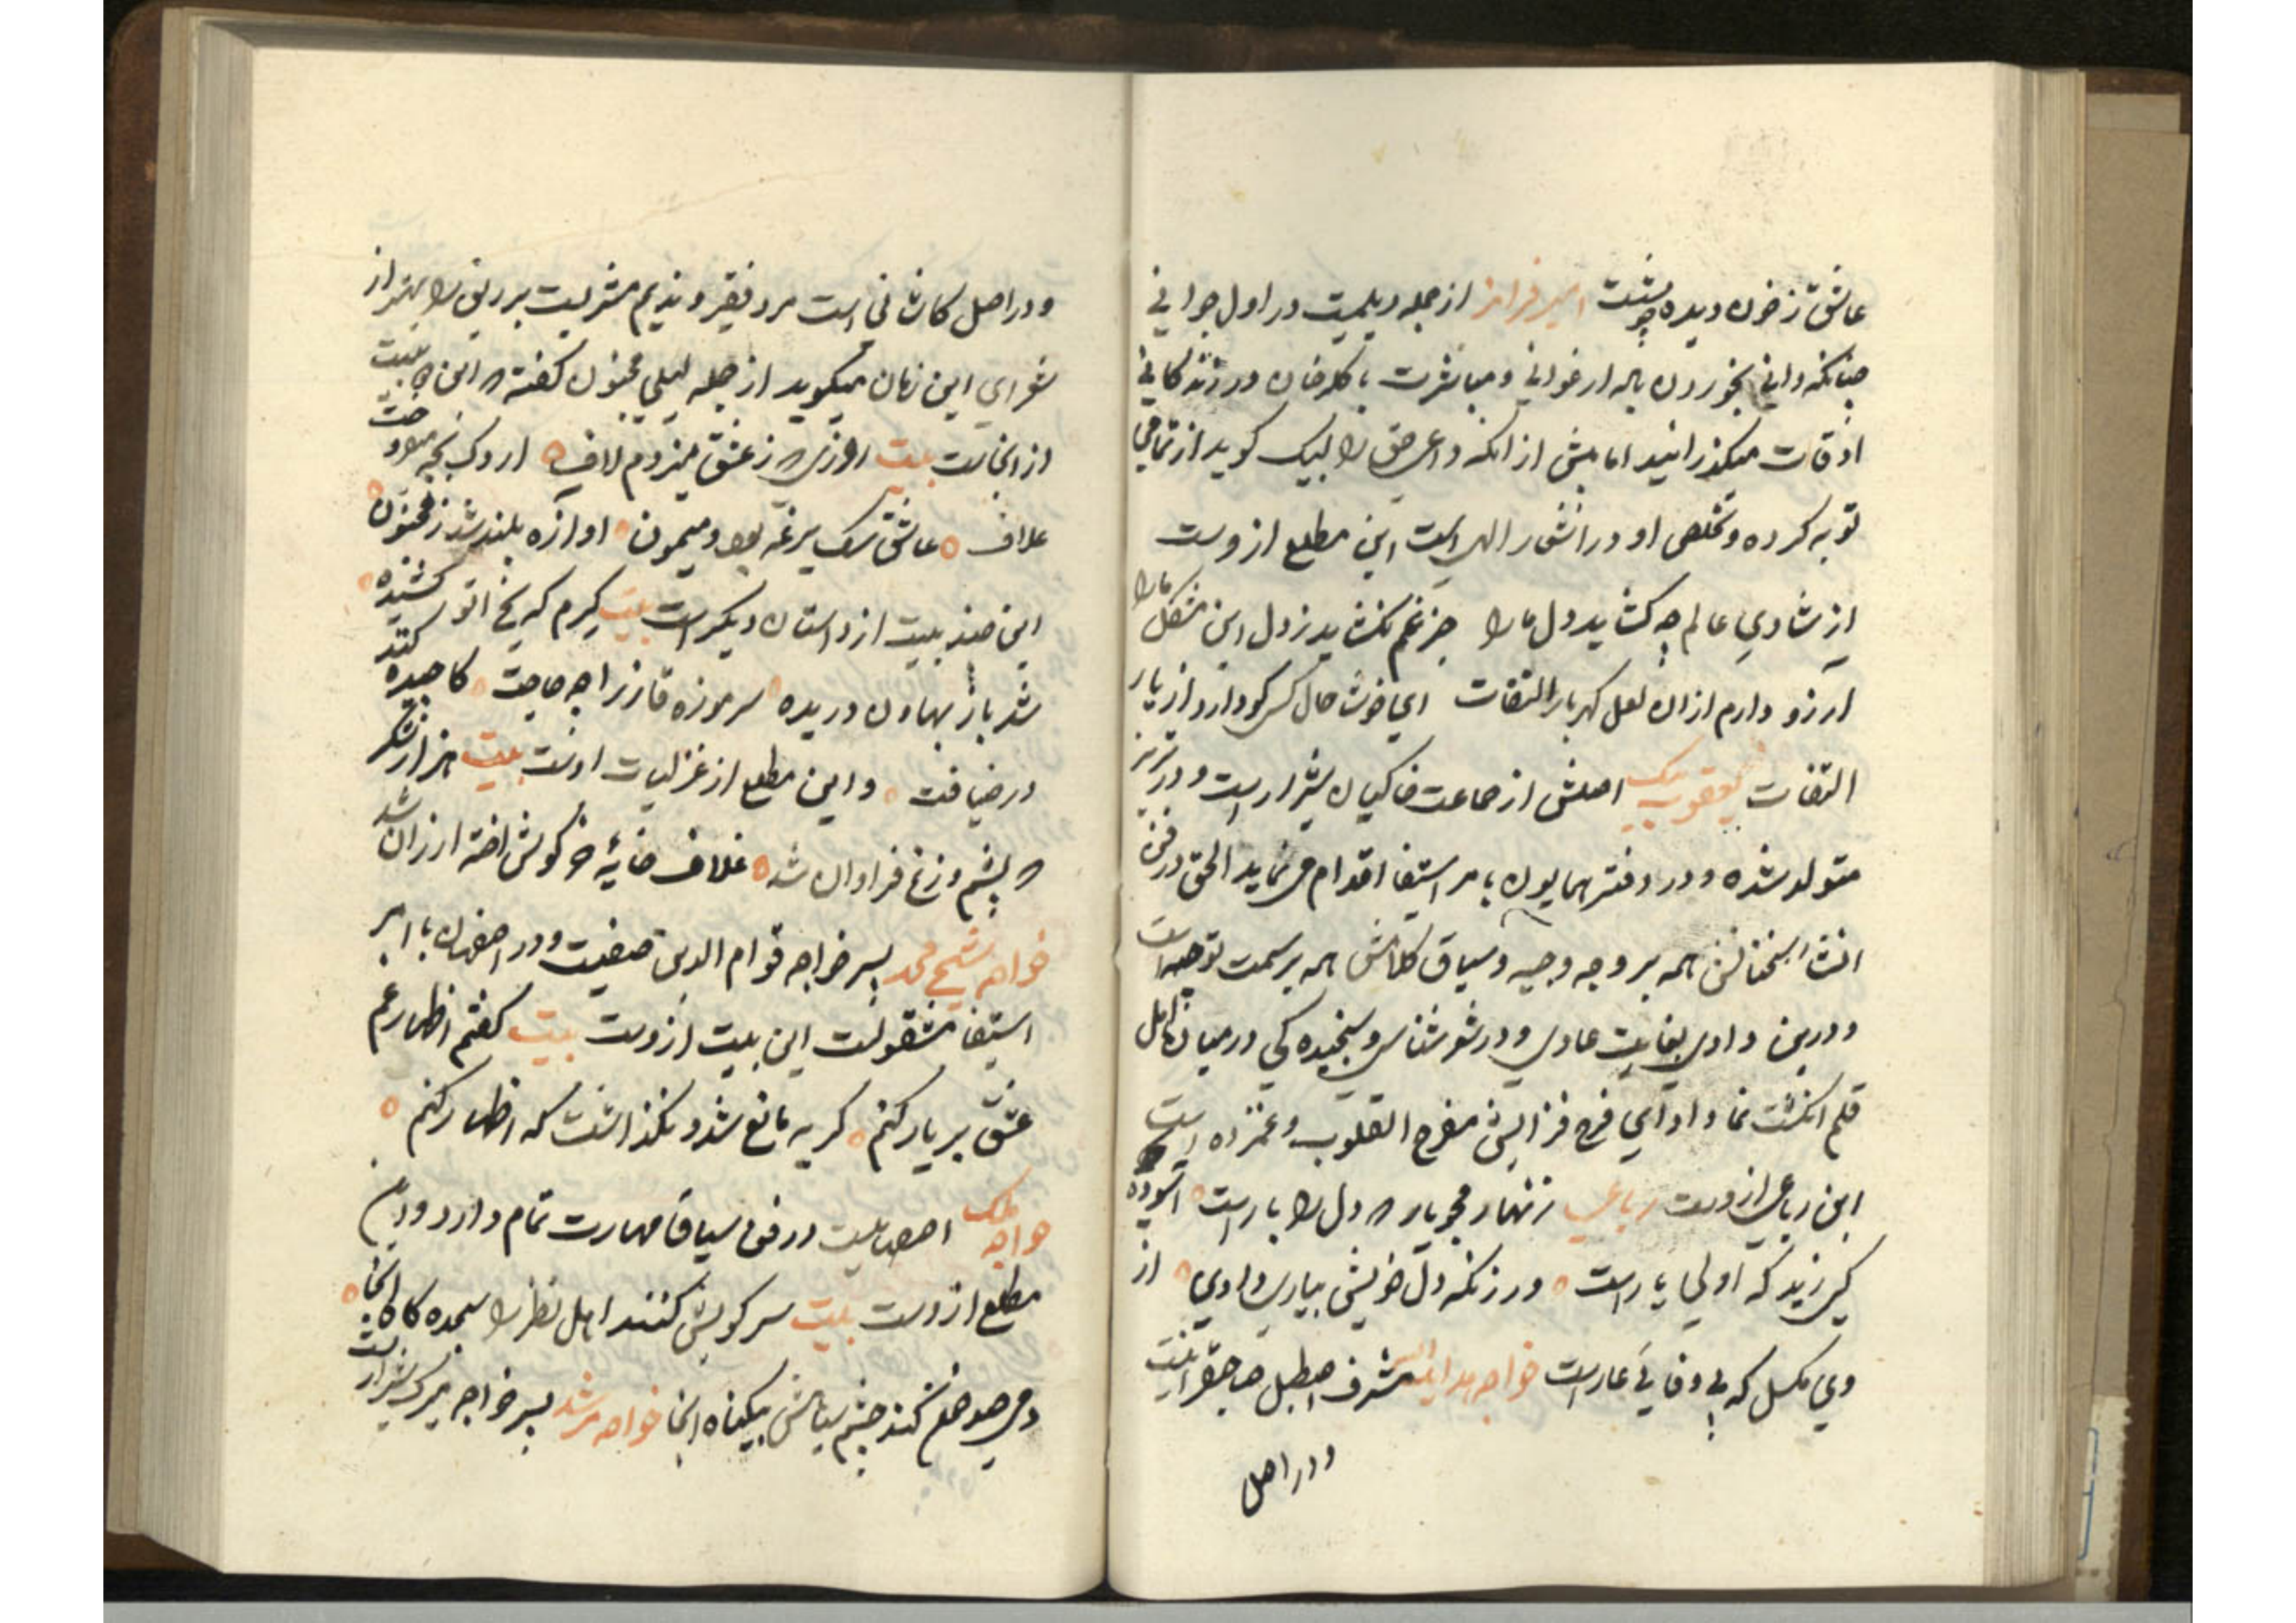 عاشق ز خون دیده چو نشست امیر فرامز از جمله دیلمیت در اول جوانی
چنانکه دانی بخوردن باله ارغوانی و مباشرت با کلرخان در زندکانی
اوقات میکذرانید اما پیش از انکه داعی حق را لبیک کوید از تمامی
توبه کرده و تخلص او در اشعار الهی است این مطلع ازوست
از شادی عالم چه کشاید دل ما را جز غم نکشاید ز دل این مشکل ما را
آرزو دارم ازان لعل کهربار التفات ای خوش حال کسی کو دارد از یار
التفات یعقوب بیک اصلش از جماعت خاکیان شیراز است و در تبریز
متولد شده و در دفتر همایون بامر استیفا اقدام می نماید الحق در فن
انشا سخنانش همه بر وجه وجیه و سیاق کلامش همه بر سمت توجیه است
و درین وادی بغایت عادی و در شعر شناسی و سنجیده کی در میان اهل
قلم انکشت نما و ادای فرح فزایش مفرح القلوب و غمزده است
این رباعی ازوست رباعی زنهار مجو یار که دل را بار است آسوده
کسی زید که اولی یار است ور زانکه دل خویش بیاری دادی از
وی مکسل که بی وفایی عار است خواجه هدایت الله مشرف اصطبل صاحبقرانیت
ودر اصل
ودر اصل کاشانی است مرد فقیر و ندیم مشربیت بردیف را بهتر از
شعرای این زمان میکوید از جمله لیلی مجنون کفته که این بیت
از انجاست بیت روزی که ز عشق میزدم لاف اردک بچه میرود
علاف عاشق سک یرغه بود و میمون اوازه بلند شد ز مجنون
این چند بیت از داستان دیکر است بیت کیرم که یخ اتو کشیده
شد باز بهاون دریده سر موزه قاز را چه حاجت کاجیده کند
در ضیافت و این مطلع از غزلیات اوست بیت هزار شکر
که پشم وزغ فراوان شد غلاف خایه خرکوش اخته ارزان شد
خواجه شیخ محمد پسر خواجه قوام الدین صفیت و در اصفهان با امر
استیفا مشغولست این بیت ازوست بیت کفتم اظهار غم
عشق بر یار کنم کریه مانع شد و نکذاشت که اظهار کنم
خواجه ملک اصفهانیت در فن سیاق مهارت تمام دارد و این
مطلع ازوست بیت سر کویش کنند اهل نظر را سجده کاه انجا
دمی صد خلق کشد چشم سیاهش بیکناه انجا خواجه مرشد پسر خواجه میرک شیراز است